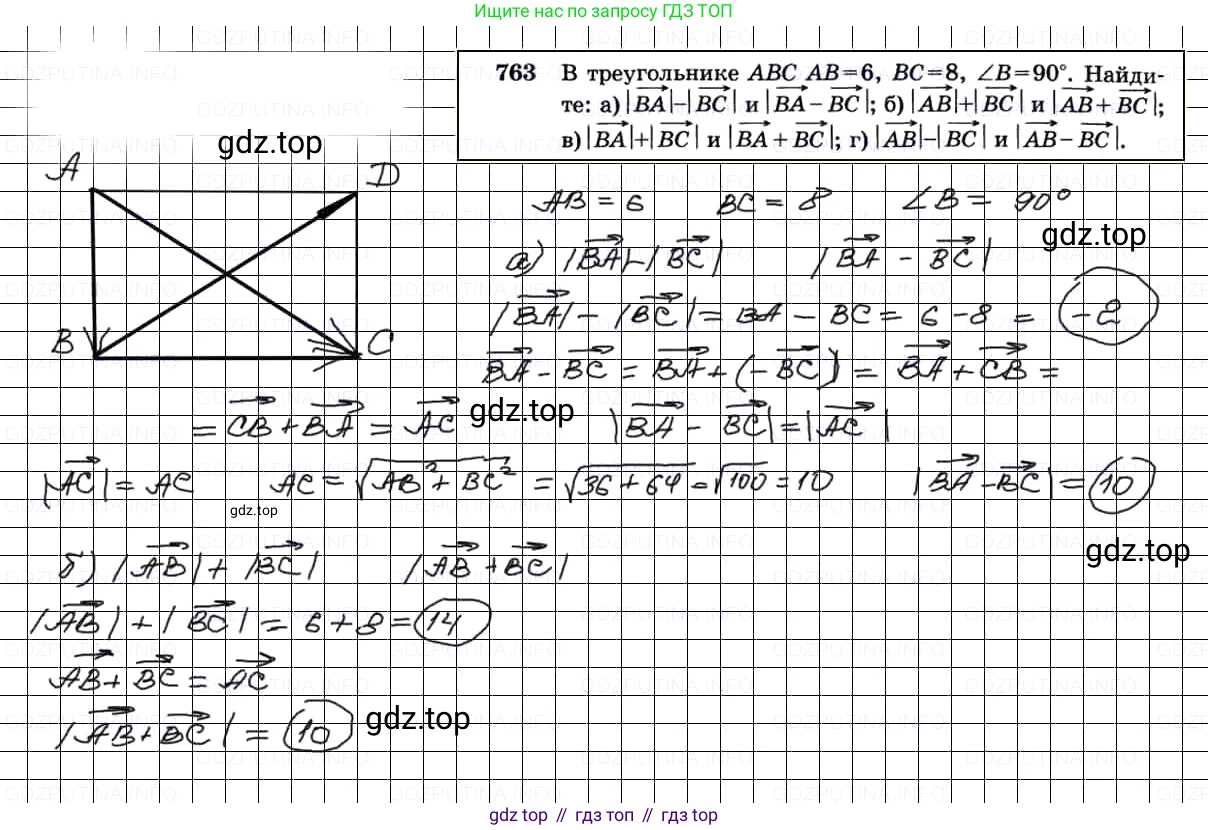 Ищите нас по запросу ГДЗ ТОП
763 В треугольнике ABC AB=6, BC=8, ∠B=90°. Найди-
те: а) |BA|−|BC| и |BA−BC|; б) |AB|+|BC| и |AB+BC|;
в) |BA|+|BC| и |BA+BC|; г) |AB|−|BC| и |AB−BC|.
gdz.top
A D
B C
AB = 6 BC = 8 ∠B = 90°
gdz.top
а) |BA|-|BC| |BA - BC|
|BA| - |BC| = BA - BC = 6 - 8 = -2
BA - BC = BA + (-BC) = BA + CB =
= CB + BA = AC gdz.top |BA - BC| = |AC|
|AC| = AC AC = √AB² + BC² = √36 + 64 = √100 = 10 |BA - BC| = 10
gdz.top
gdz.top
б) |AB| + |BC| |AB + BC|
|AB| + |BC| = 6 + 8 = 14
AB + BC = AC
|AB + BC| = 10 gdz.top
gdz top // гдз топ // gdz top
GDZPUTINA.INFO